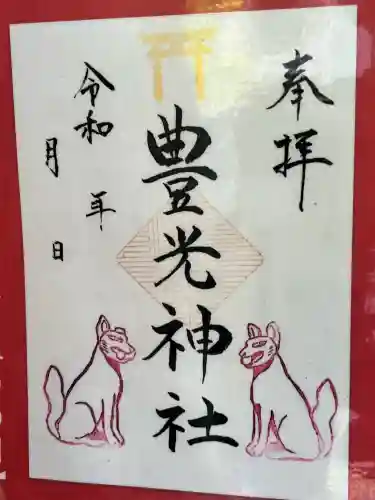 奉拝
豊光神社
令和 年
月 日